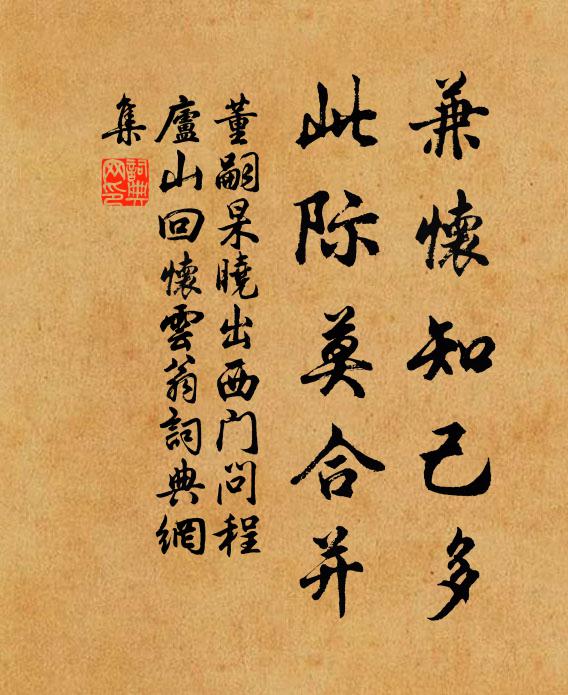 兼懷知己多
此际莫合并
董嗣杲曉出西门问程
廬山回懷雲翁詞典網
集
詞典网印